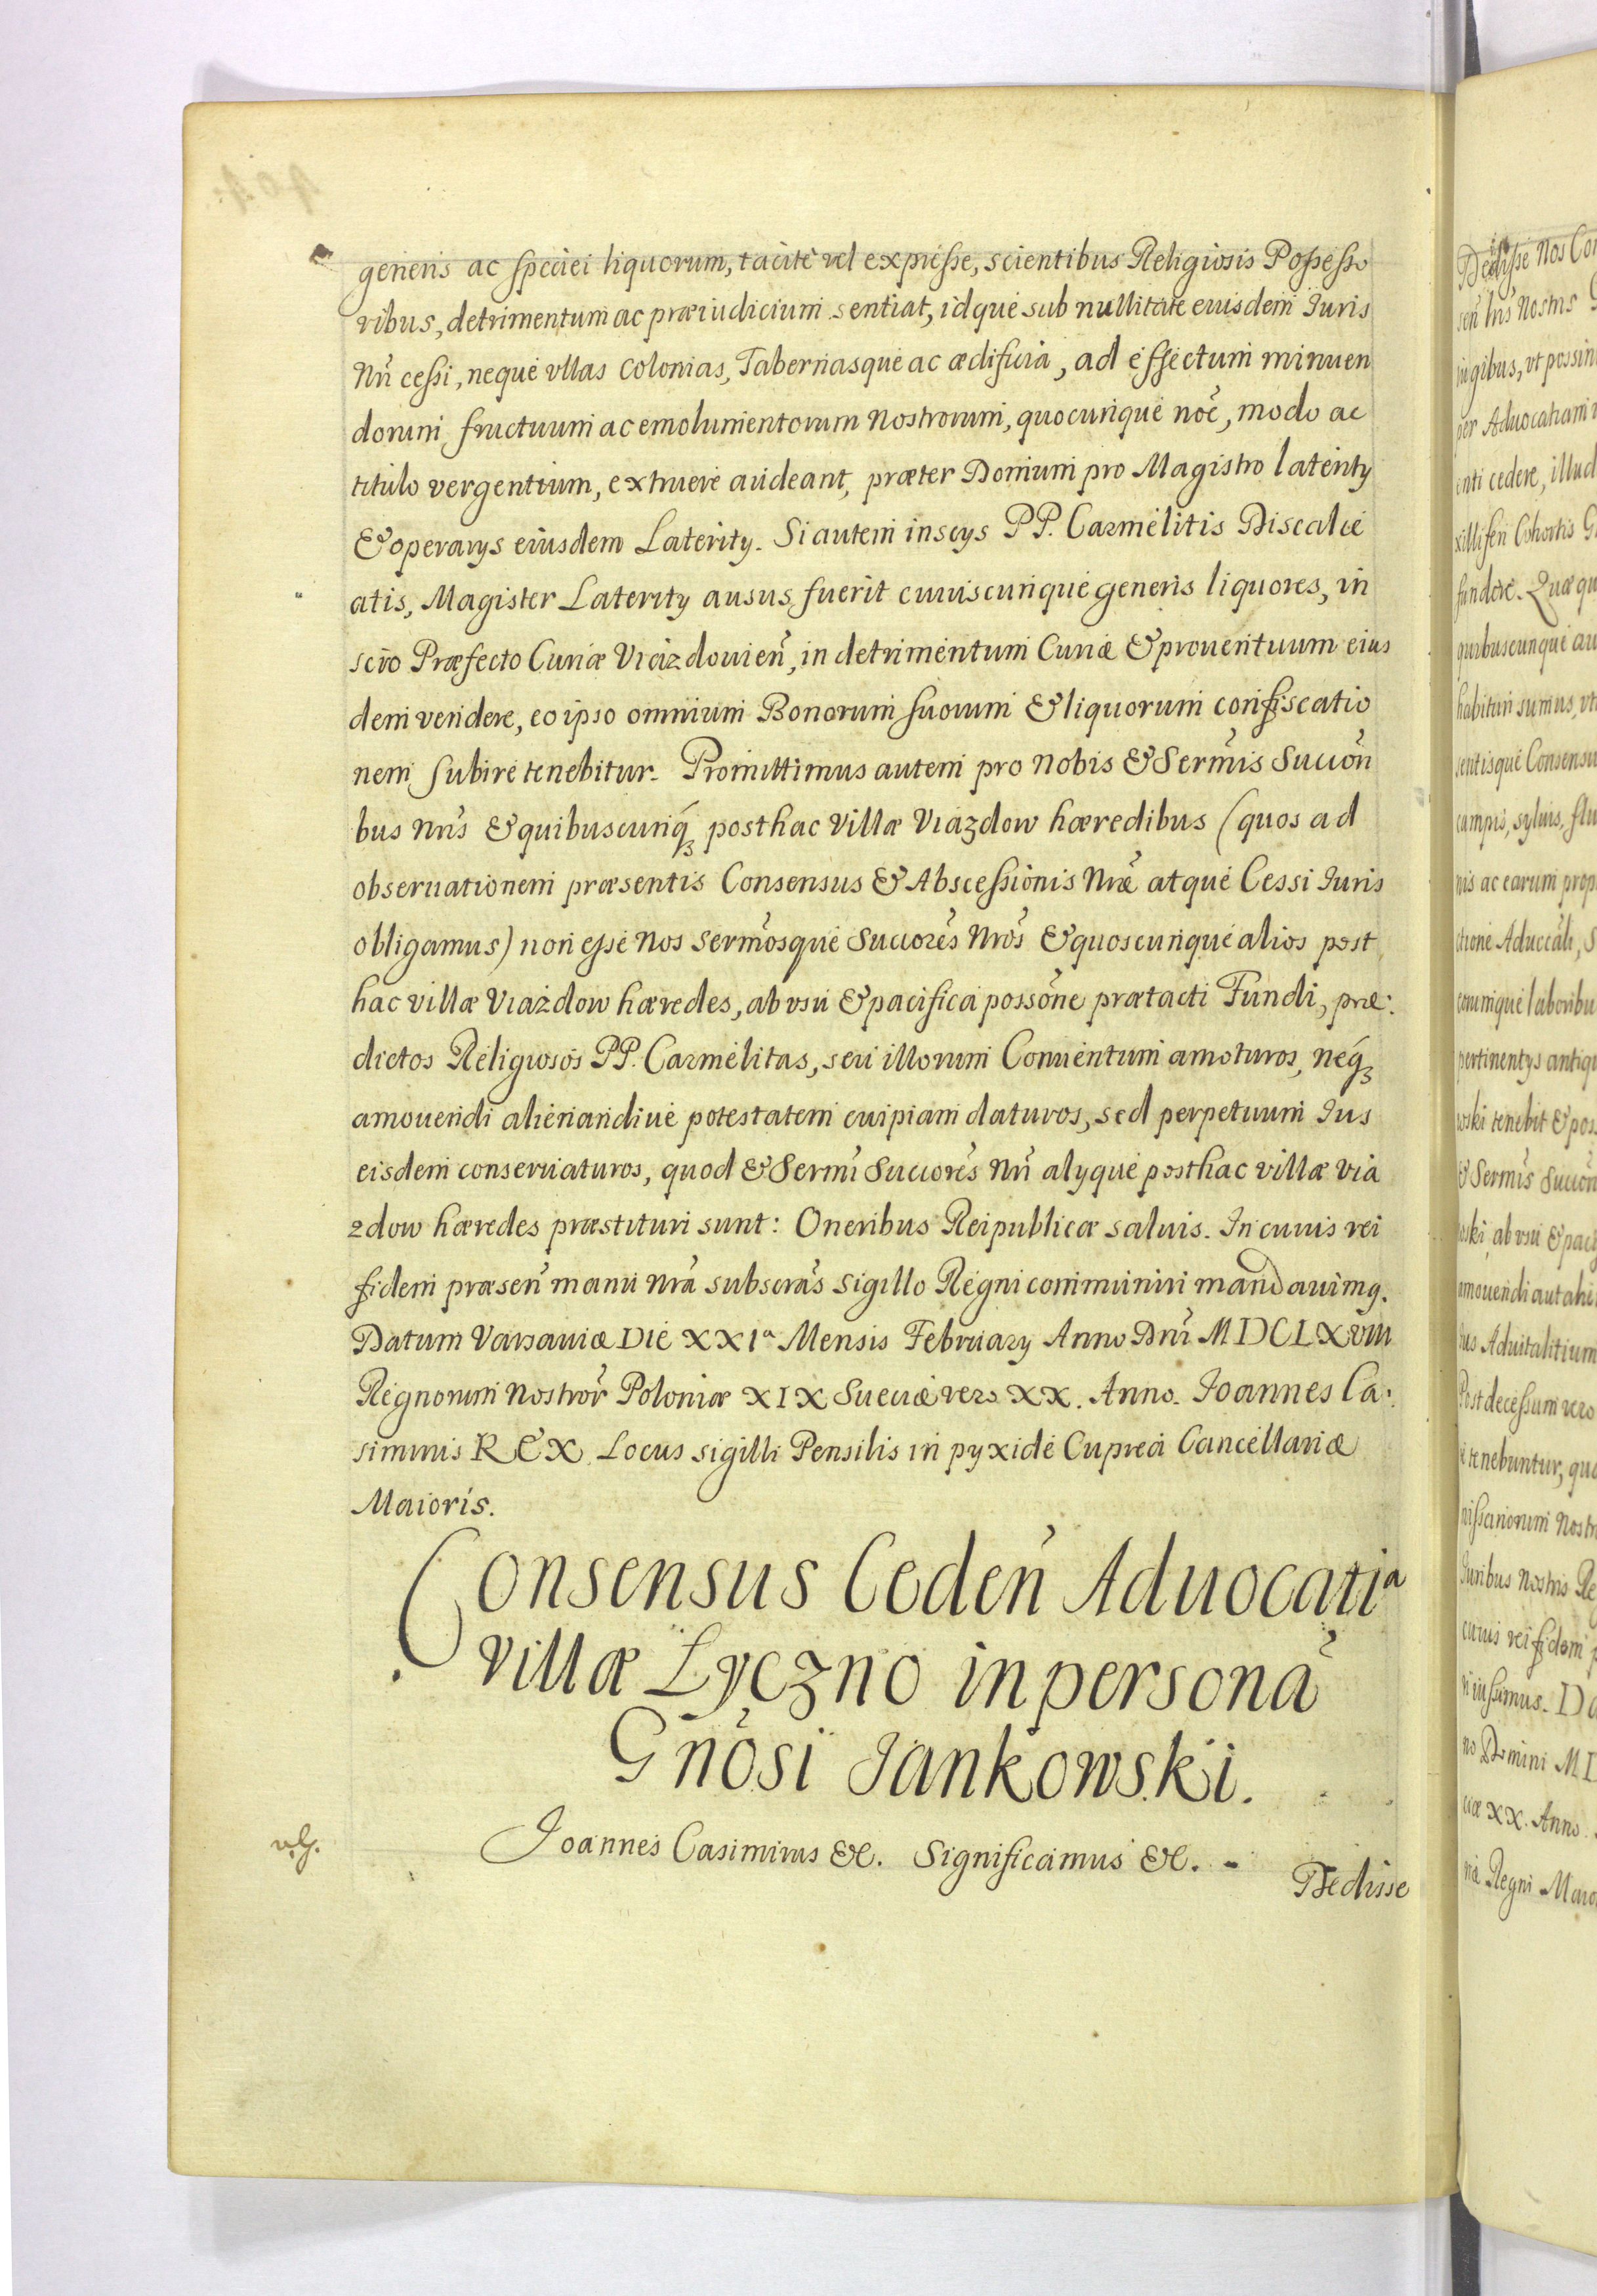 generis ac speciei liquorum, tacitè vel expresse, scientibus Religiosis Possesso
ribus, detrimentum ac præiudicium sentiat, idque sub nullitate eiusdem Iuris
Nri cessi, neque vllas colonias, Tabernasque ac ædificia, ad effectum minuen
dorum fructuum ac emolumentorum Nostrorum, quocunque noe, modo ac
titulo vergentium, extruere audeant, præter Domum pro Magistro laterity
& operarys eiusdem Laterity. Si autem inscys PP. Carmelitis Discalce
atis, Magister Laterity ausus fuerit cuiuscunque generis liquores, in
scio Præfecto Curiæ Viazdouien, in detrimentum Curiæ & prouentuum eius
dem vendere, eo ipso omnium Bonorum suorum & liquorum confiscatio
nem subire tenebitur. Promittimus autem pro Nobis & Sermis Succori
bus Nris & quibuscunq posthac Villæ Viazdow hæredibus (quos ad
obseruationem præsentis Consensus & Abscessionis Nræ atque Cessi Iuris
obligamus) non esse Nos Sermosque Succores Nros & quoscunque alios post
hac villæ Viazdow hæredes, ab vsu & pacifica possone prætacti Fundi, præ:
dictos Religiosos PP. Carmelitas, seu illorum Conuentum amoturos, neq
amouendi alienandiue potestatem cuipiam daturos, sed perpetuum Ius
eisdem conseruaturos, quod & Sermi Succores Nri alyque posthac villæ Via
zdow hæredes præstituri sunt: Oneribus Reipublicæ saluis. In cuius rei
fidem præsen manu Nra subscras sigillo Regni communiri mandauimg.
Datum Varsauiæ Die XXIa Mensis February Anno Dni MDCLXVIII
Regnorum Nostror Poloniæ XIX Sueciæ vero XX. Anno. Joannes Ca:
simirus REX. Locus sigilli Pensilis in pyxide Cuprea Cancellariæ
Maioris.
Consensus Ceden Aduocatia
villæ Lyczno in persona
Gnosi Jankowski.
Joannes Casimirus &c. Significamus &c. -
Dedisse